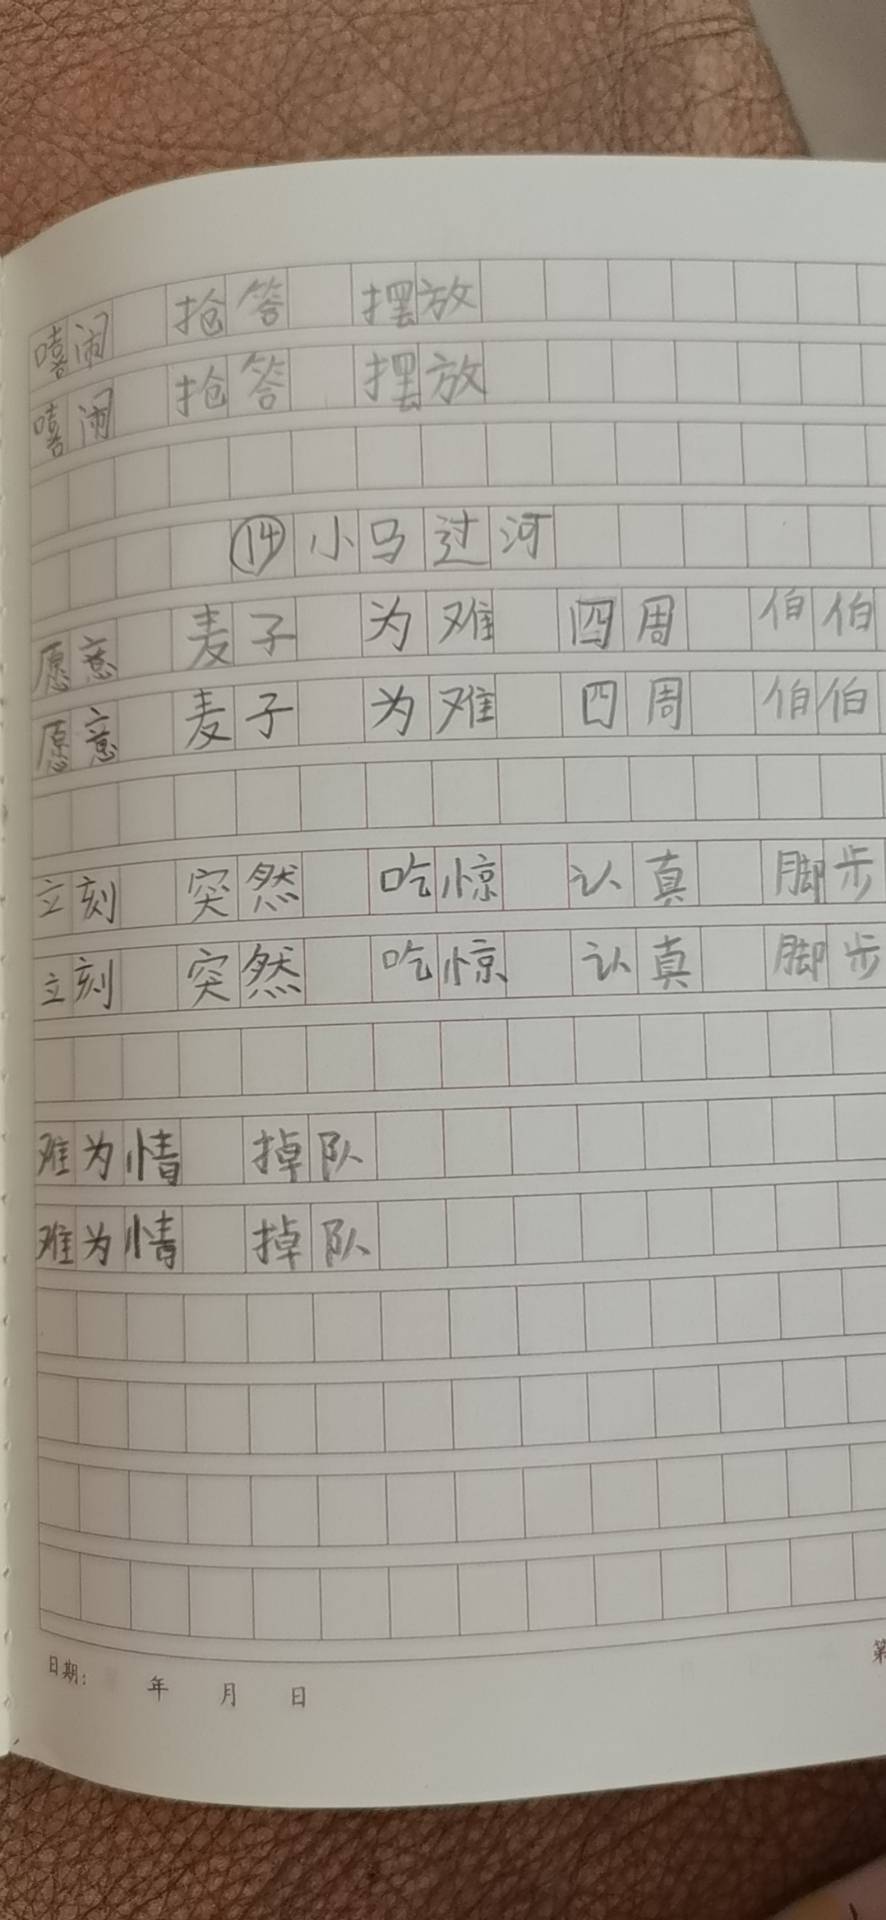 嘻闹 抢答 摆放
嘻闹 抢答 摆放
⑭小马过河
愿意 麦子 为难 四周 伯伯
愿意 麦子 为难 四周 伯伯
立刻 突然 吃惊 认真 脚步
立刻 突然 吃惊 认真 脚步
难为情 掉队
难为情 掉队
日期： 年 月 日 第